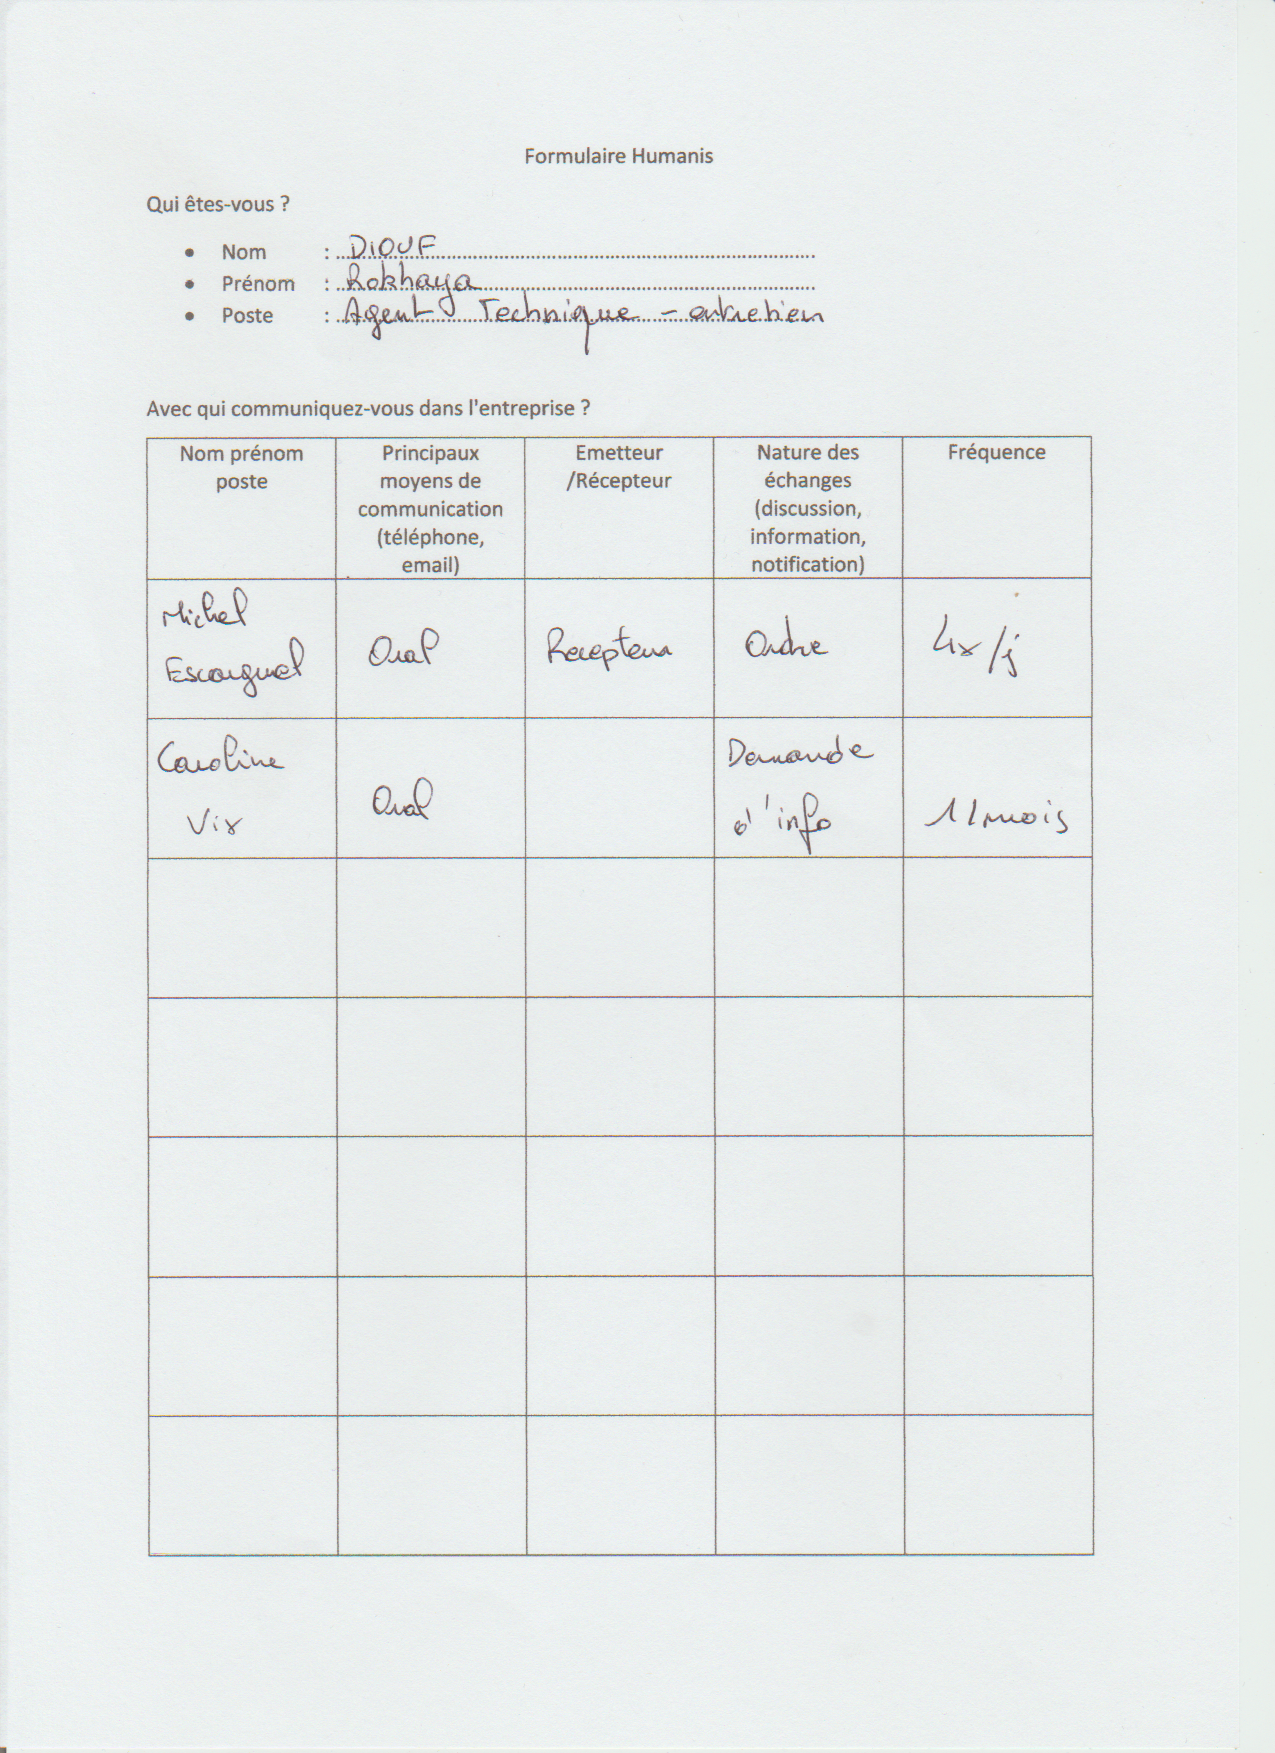 Formulaire Humanis
Qui êtes-vous ?
• Nom : DIOUF
• Prénom : Rokhaya
• Poste : Agent Technique - entretien
Avec qui communiquez-vous dans l'entreprise ?
Nom prénom
poste
Principaux
moyens de
communication
(téléphone,
email)
Emetteur
/Récepteur
Nature des
échanges
(discussion,
information,
notification)
Fréquence
Michel
Escarguel
Oral
Recepteur
Ordre
4x/j
Caroline
Vix
Oral
Demande
d'info
1/mois